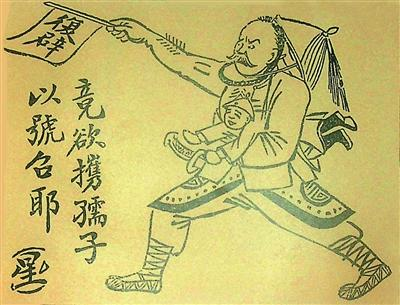 復辟
竟欲攜孺子
以號召耶
星